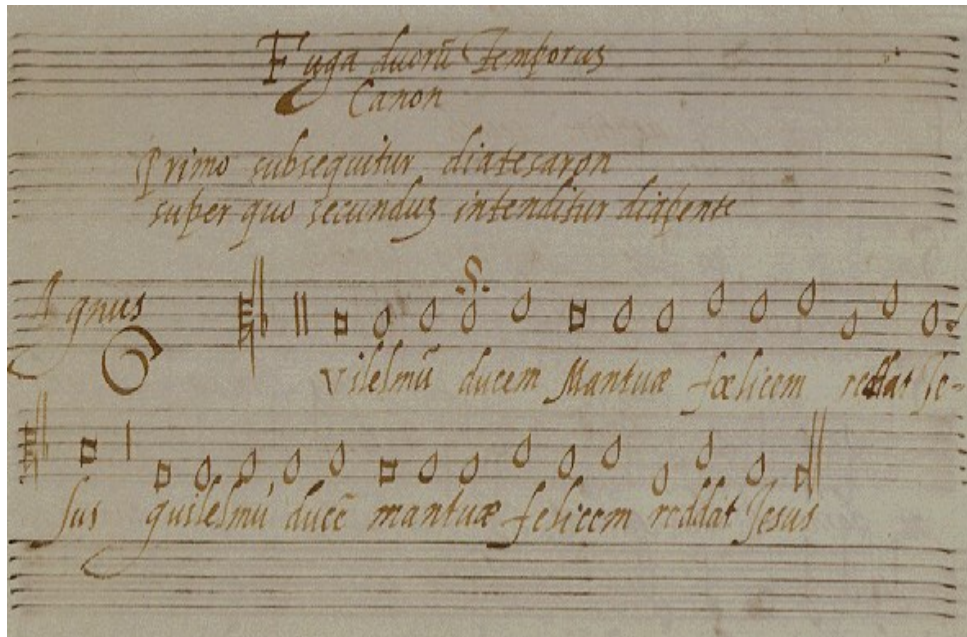 Fuga duorū Temporus
Canon
Primo subsequitur diatesaron
super quo secundus intenditur diapente
Agnus
Vilelmū ducem Mantuæ fœlicem reddat Je-
sus guilelmū ducē mantuæ felicem reddat Jesus